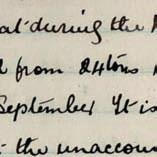 during the
from 24tons
September It is
the unaccoun